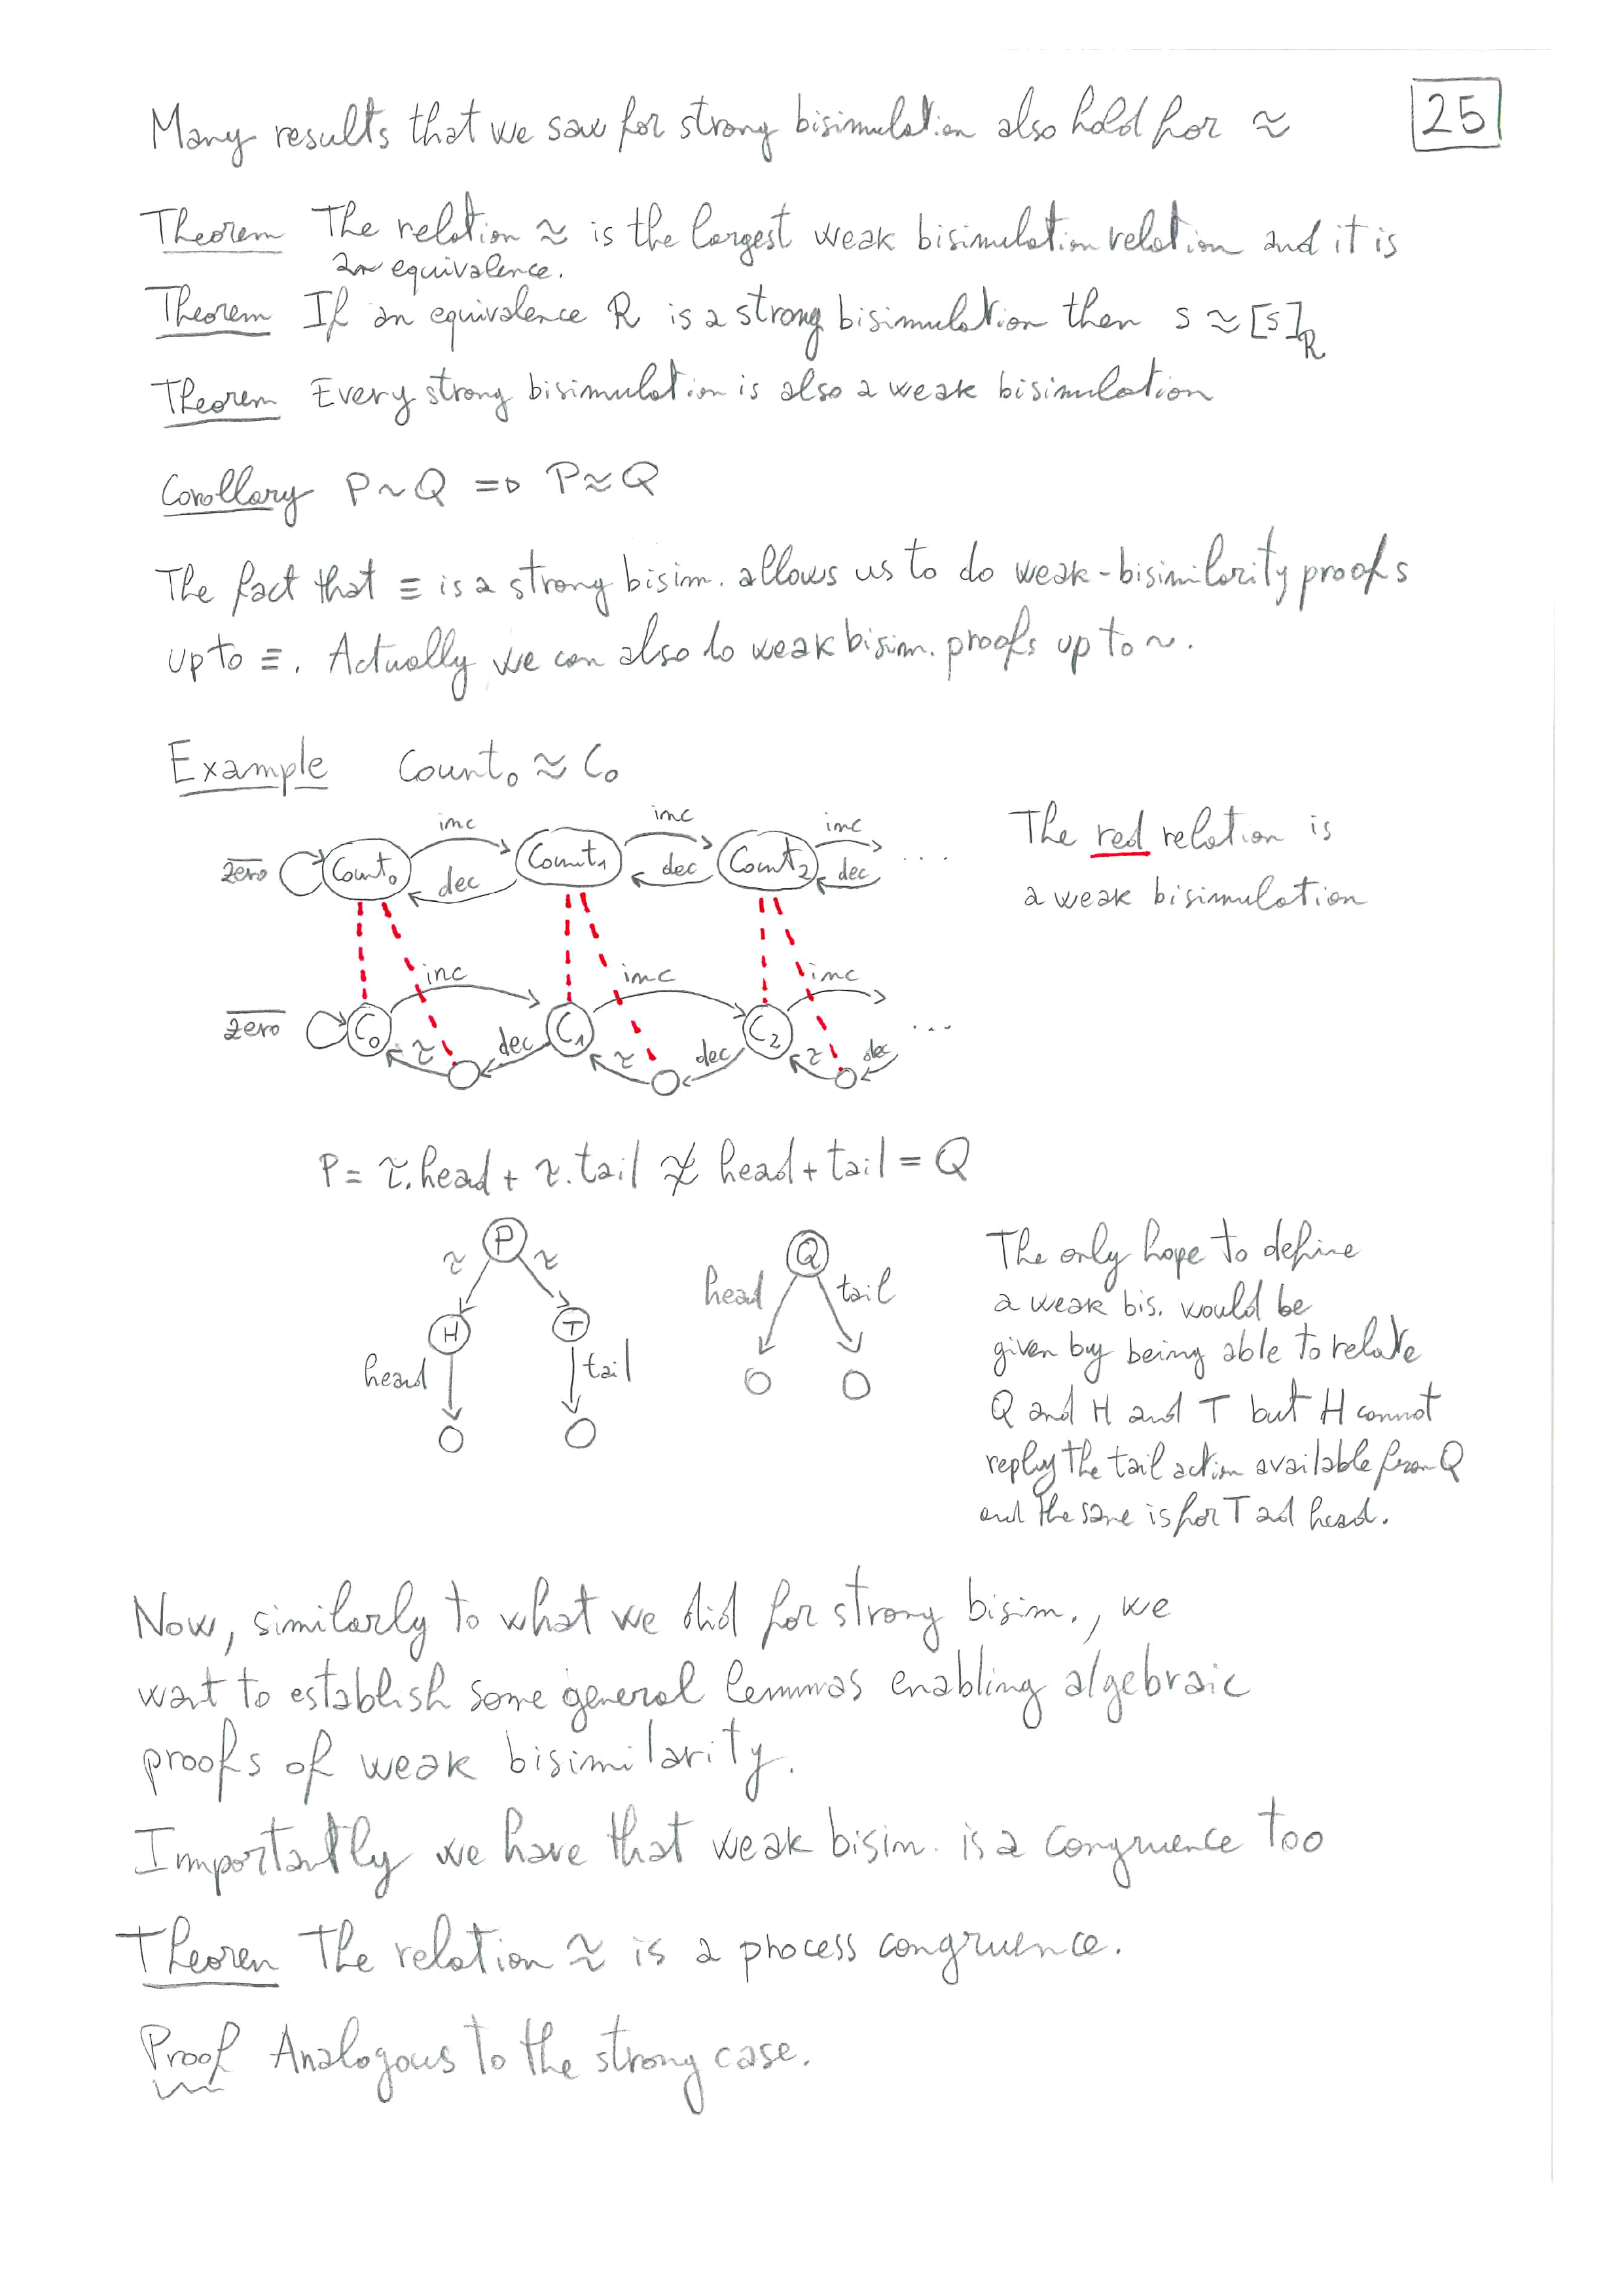 Many results that we saw for strong bisimulation also hold for ≈
25
Theorem The relation ≈ is the largest weak bisimulation relation and it is
an equivalence.
Theorem If an equivalence R is a strong bisimulation then s ≈ [s]R
Theorem Every strong bisimulation is also a weak bisimulation
Corollary P ~ Q => P ≈ Q
The fact that ≡ is a strong bisim. allows us to do weak-bisimilarity proofs
up to ≡. Actually we can also do weak bisim. proofs up to ~.
Example Count₀ ≈ C₀
inc inc inc
zero Count₀ dec Count₁ dec Count₂ dec ...
The red relation is
a weak bisimulation
inc inc inc
zero C₀ τ dec C₁ τ dec C₂ τ dec ...
P = τ.head + τ.tail ≉ head + tail = Q
P
τ τ
H T
head tail
Q
head tail
The only hope to define
a weak bis. would be
given by being able to relate
Q and H and T but H cannot
reply the tail action available from Q
and the same is for T ad head.
Now, similarly to what we did for strong bisim., we
want to establish some general lemmas enabling algebraic
proofs of weak bisimilarity.
Importantly we have that weak bisim. is a congruence too
Theorem The relation ≈ is a process congruence.
Proof Analogous to the strong case.